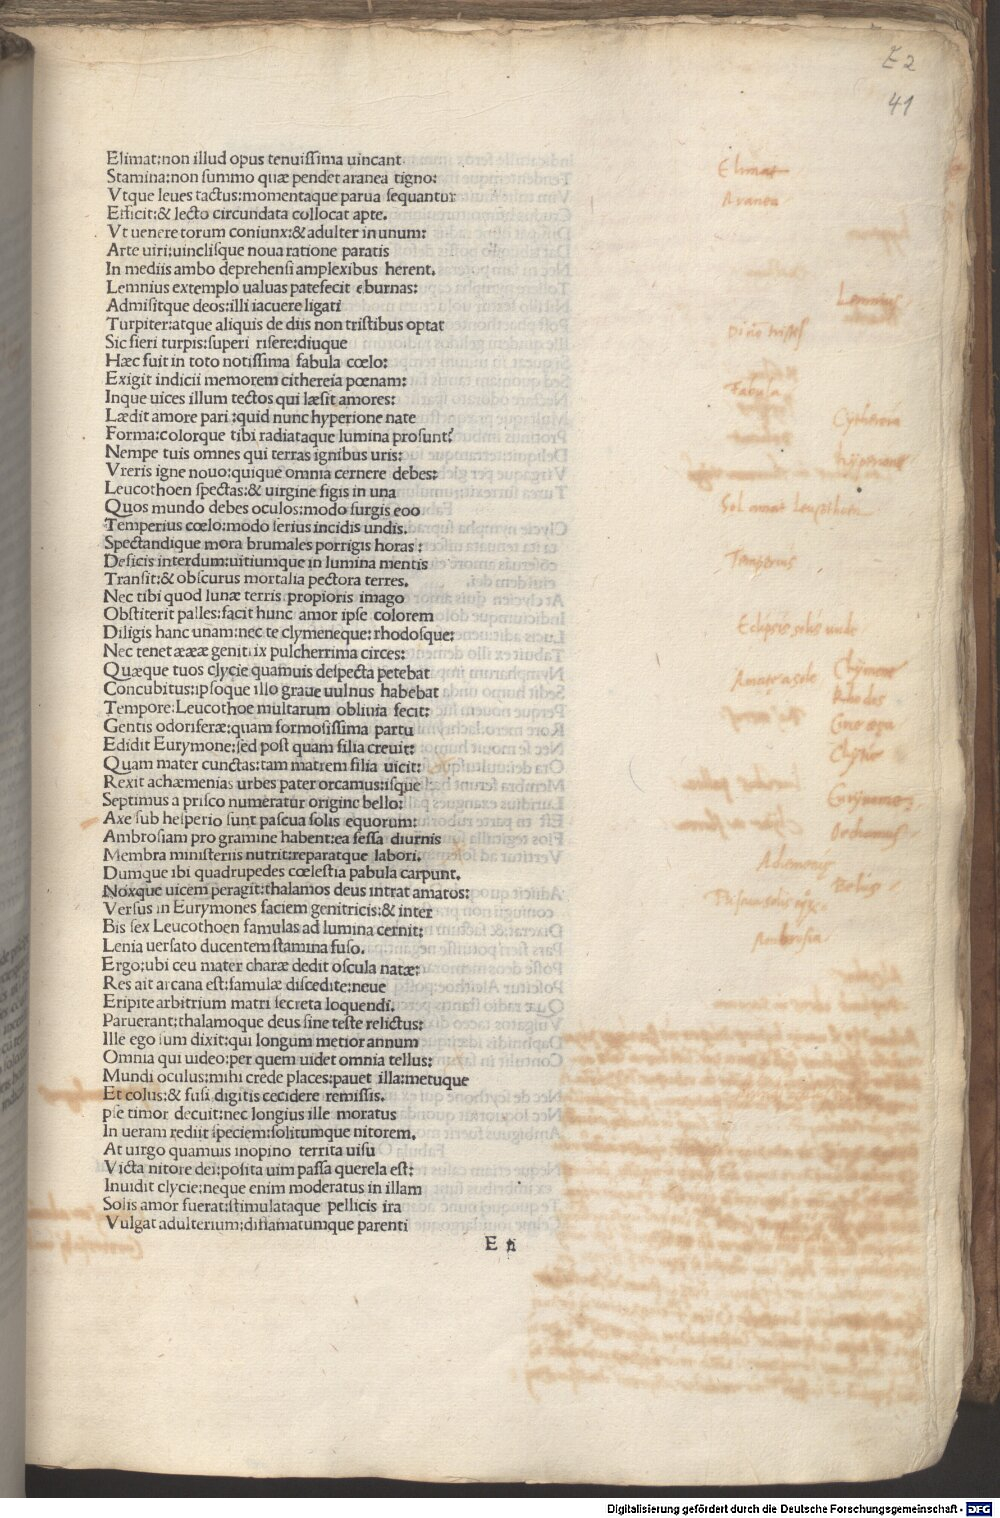 E 2
41
Elimat:non illud opus tenuissima uincant
Stamina:non summo quæ pendet aranea tigno:
Vtque leues tactus:momentaque parua sequantur
Efficit:& lecto circundata collocat apte.
Vt uenere torum coniunx:& adulter in unum:
Arte uiri:uinclisque noua ratione paratis
In mediis ambo deprehensi amplexibus herent.
Lemnius extemplo ualuas patefecit eburnas:
Admisitque deos:illi iacuere ligati
Turpiter:atque aliquis de diis non tristibus optat
Sic fieri turpis:superi risere:diuque
Hæc fuit in toto notissima fabula cœlo:
Exigit indicii memorem cithereia pœnam:
Inque uices illum tectos qui læsit amores:
Lædit amore pari:quid nunc hyperione nate
Forma:colorque tibi radiataque lumina prosunt?
Nempe tuis omnes qui terras ignibus uris:
Vreris igne nouo:quique omnia cernere debes:
Leucothoen spectas:& uirgine figis in una
Quos mundo debes oculos:modo surgis eoo
Temperius cœlo:modo serius incidis undis.
Spectandique mora brumales porrigis horas:
Deficis interdum:uitiumque in lumina mentis
Transit:& obscurus mortalia pectora terres.
Nec tibi quod lunæ terris propioris imago
Obstiterit palles:facit hunc amor ipse colorem
Diligis hanc unam:nec te clymeneque:rhodosque:
Nec tenet ææææ genitrix pulcherrima circes:
Quæque tuos clycie quamuis despecta petebat
Concubitus:ipsoque illo graue uulnus habebat
Tempore:Leucothoe multarum obliuia fecit:
Gentis odoriferæ:quam formosissima partu
Edidit Eurymone:sed post quam filia creuit:
Quam mater cunctas:tam matrem filia uicit:
Rexit achæmenias urbes pater orcamus:isque
Septimus a prisco numeratur origine bello:
Axe sub hesperio sunt pascua solis equorum:
Ambrosiam pro gramine habent:ea fessa diurnis
Membra ministeriis nutrit:reparatque labori.
Dumque ibi quadrupedes cœlestia pabula carpunt.
Noxque uicem peragit:thalamos deus intrat amatos:
Versus in Eurymones faciem genitricis:& inter
Bis sex Leucothoen famulas ad lumina cernit:
Lenia uersato ducentem stamina fuso.
Ergo:ubi ceu mater charæ dedit oscula natæ:
Res ait arcana est:famulæ discedite:neue
Eripite arbitrium matri secreta loquendi.
Paruerant:thalamoque deus sine teste relictus:
Ille ego sum dixit:qui longum metior annum
Omnia qui uideo:per quem uidet omnia tellus:
Mundi oculus:mihi crede places:pauet illa:metuque
Et colus:& fusi digitis cecidere remissis.
pse timor decuit:nec longius ille moratus
In ueram rediit speciem:solitumque nitorem.
At uirgo quamuis inopino territa uisu
Victa nitore dei:posita uim passa querela est:
Inuidit clycie:neque enim moderatus in illam
Solis amor fuerat:stimulataque pellicis ira
Vulgat adulterium:diffamatumque parenti
E ii
Elimat
Aranea
Lemnius
Fabula
Cytherea
Hyperione
Sol amat Leucothoen
Temperius
Eclipsis solis unde
Clymene
Rhodos
Clytie
Eurymone
Orchamus
Belus
Ambrosia
Digitalisierung gefördert durch die Deutsche Forschungsgemeinschaft - DFG